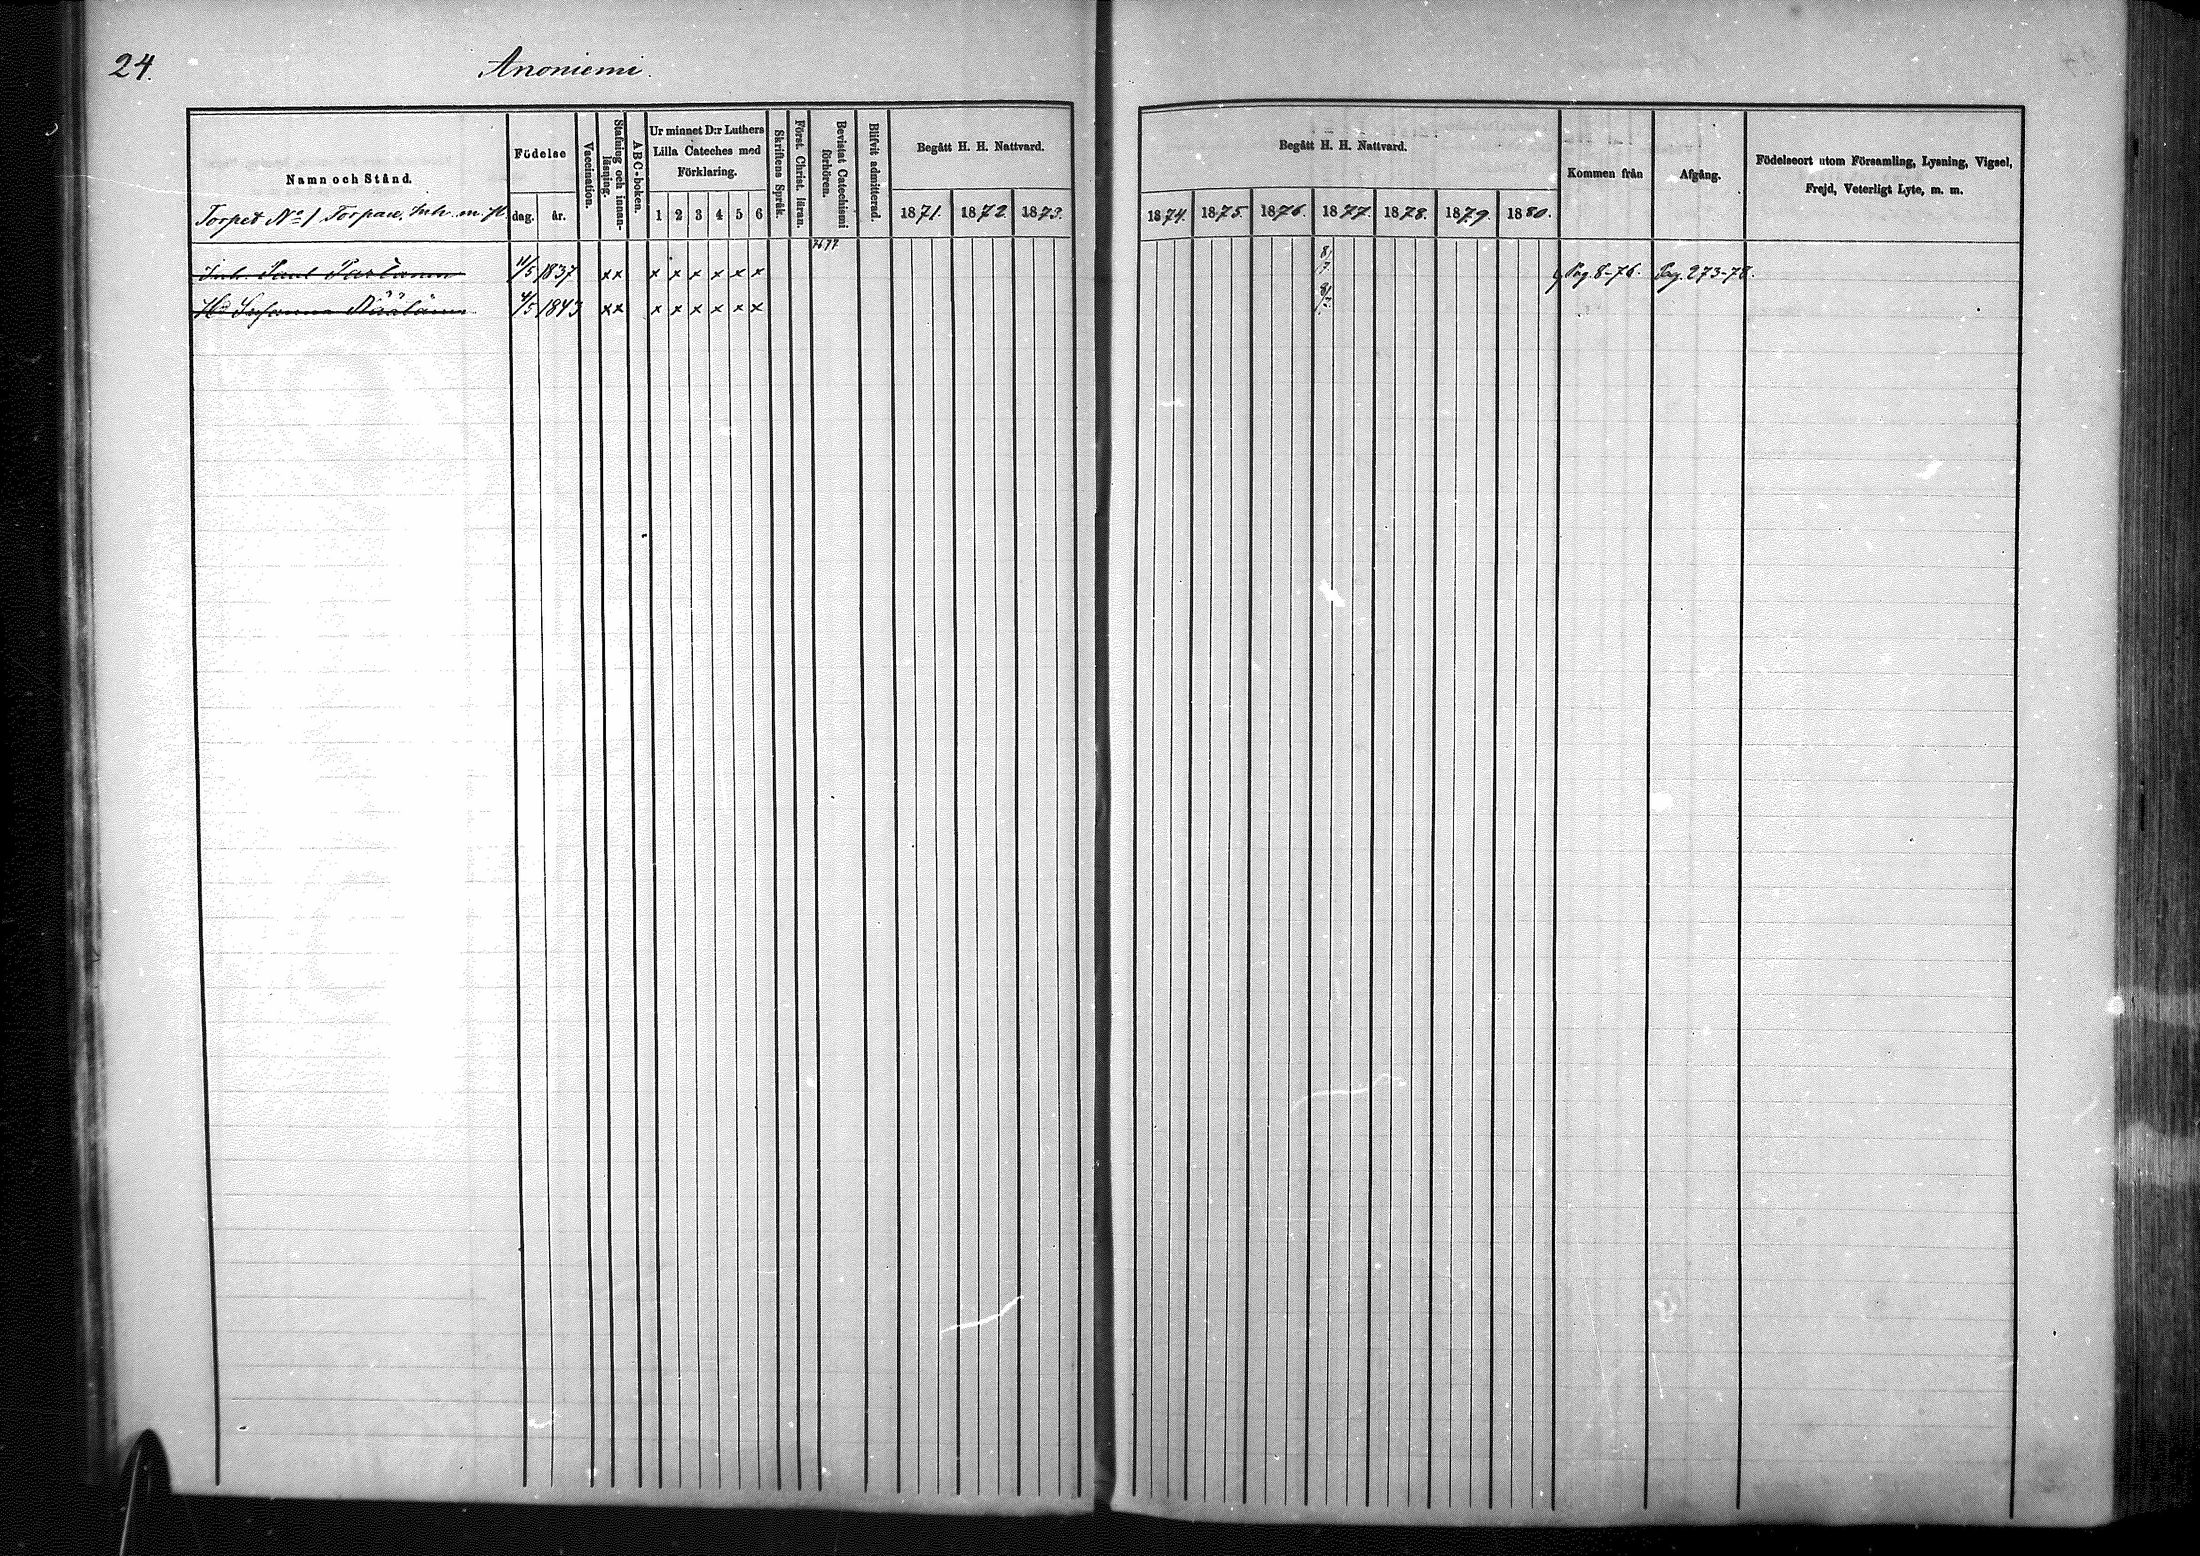 24.
Anoniemi.
Namn och Stånd.
Torpet No 1 Torpare, Inh. m. fl.
Födelse
dag. år.
Vaccination.
Stafning och innan-
läsning.
ABC-boken.
Ur minnet D:r Luthers
Lilla Cateches med
Förklaring.
1 2 3 4 5 6
Skriftens Språk.
Först. Christ. läran.
Bevistat Catechismi
förhören.
Blifvit admitterad.
Begått H. H. Nattvard.
1871. 1872. 1873.
Begått H. H. Nattvard.
1874. 1875. 1876. 1877. 1878. 1879. 1880.
Kommen från
Afgång.
Födelseort utom Församling, Lysning, Vigsel,
Frejd, Veterligt Lyte, m. m.
76 77
Inh. Paul 11/5 1837 x x x x x x x x 8/7. Pag. 8-76. Pag. 273-78.
Hu Susanna 4/5 1843 x x x x x x x x 8/7.